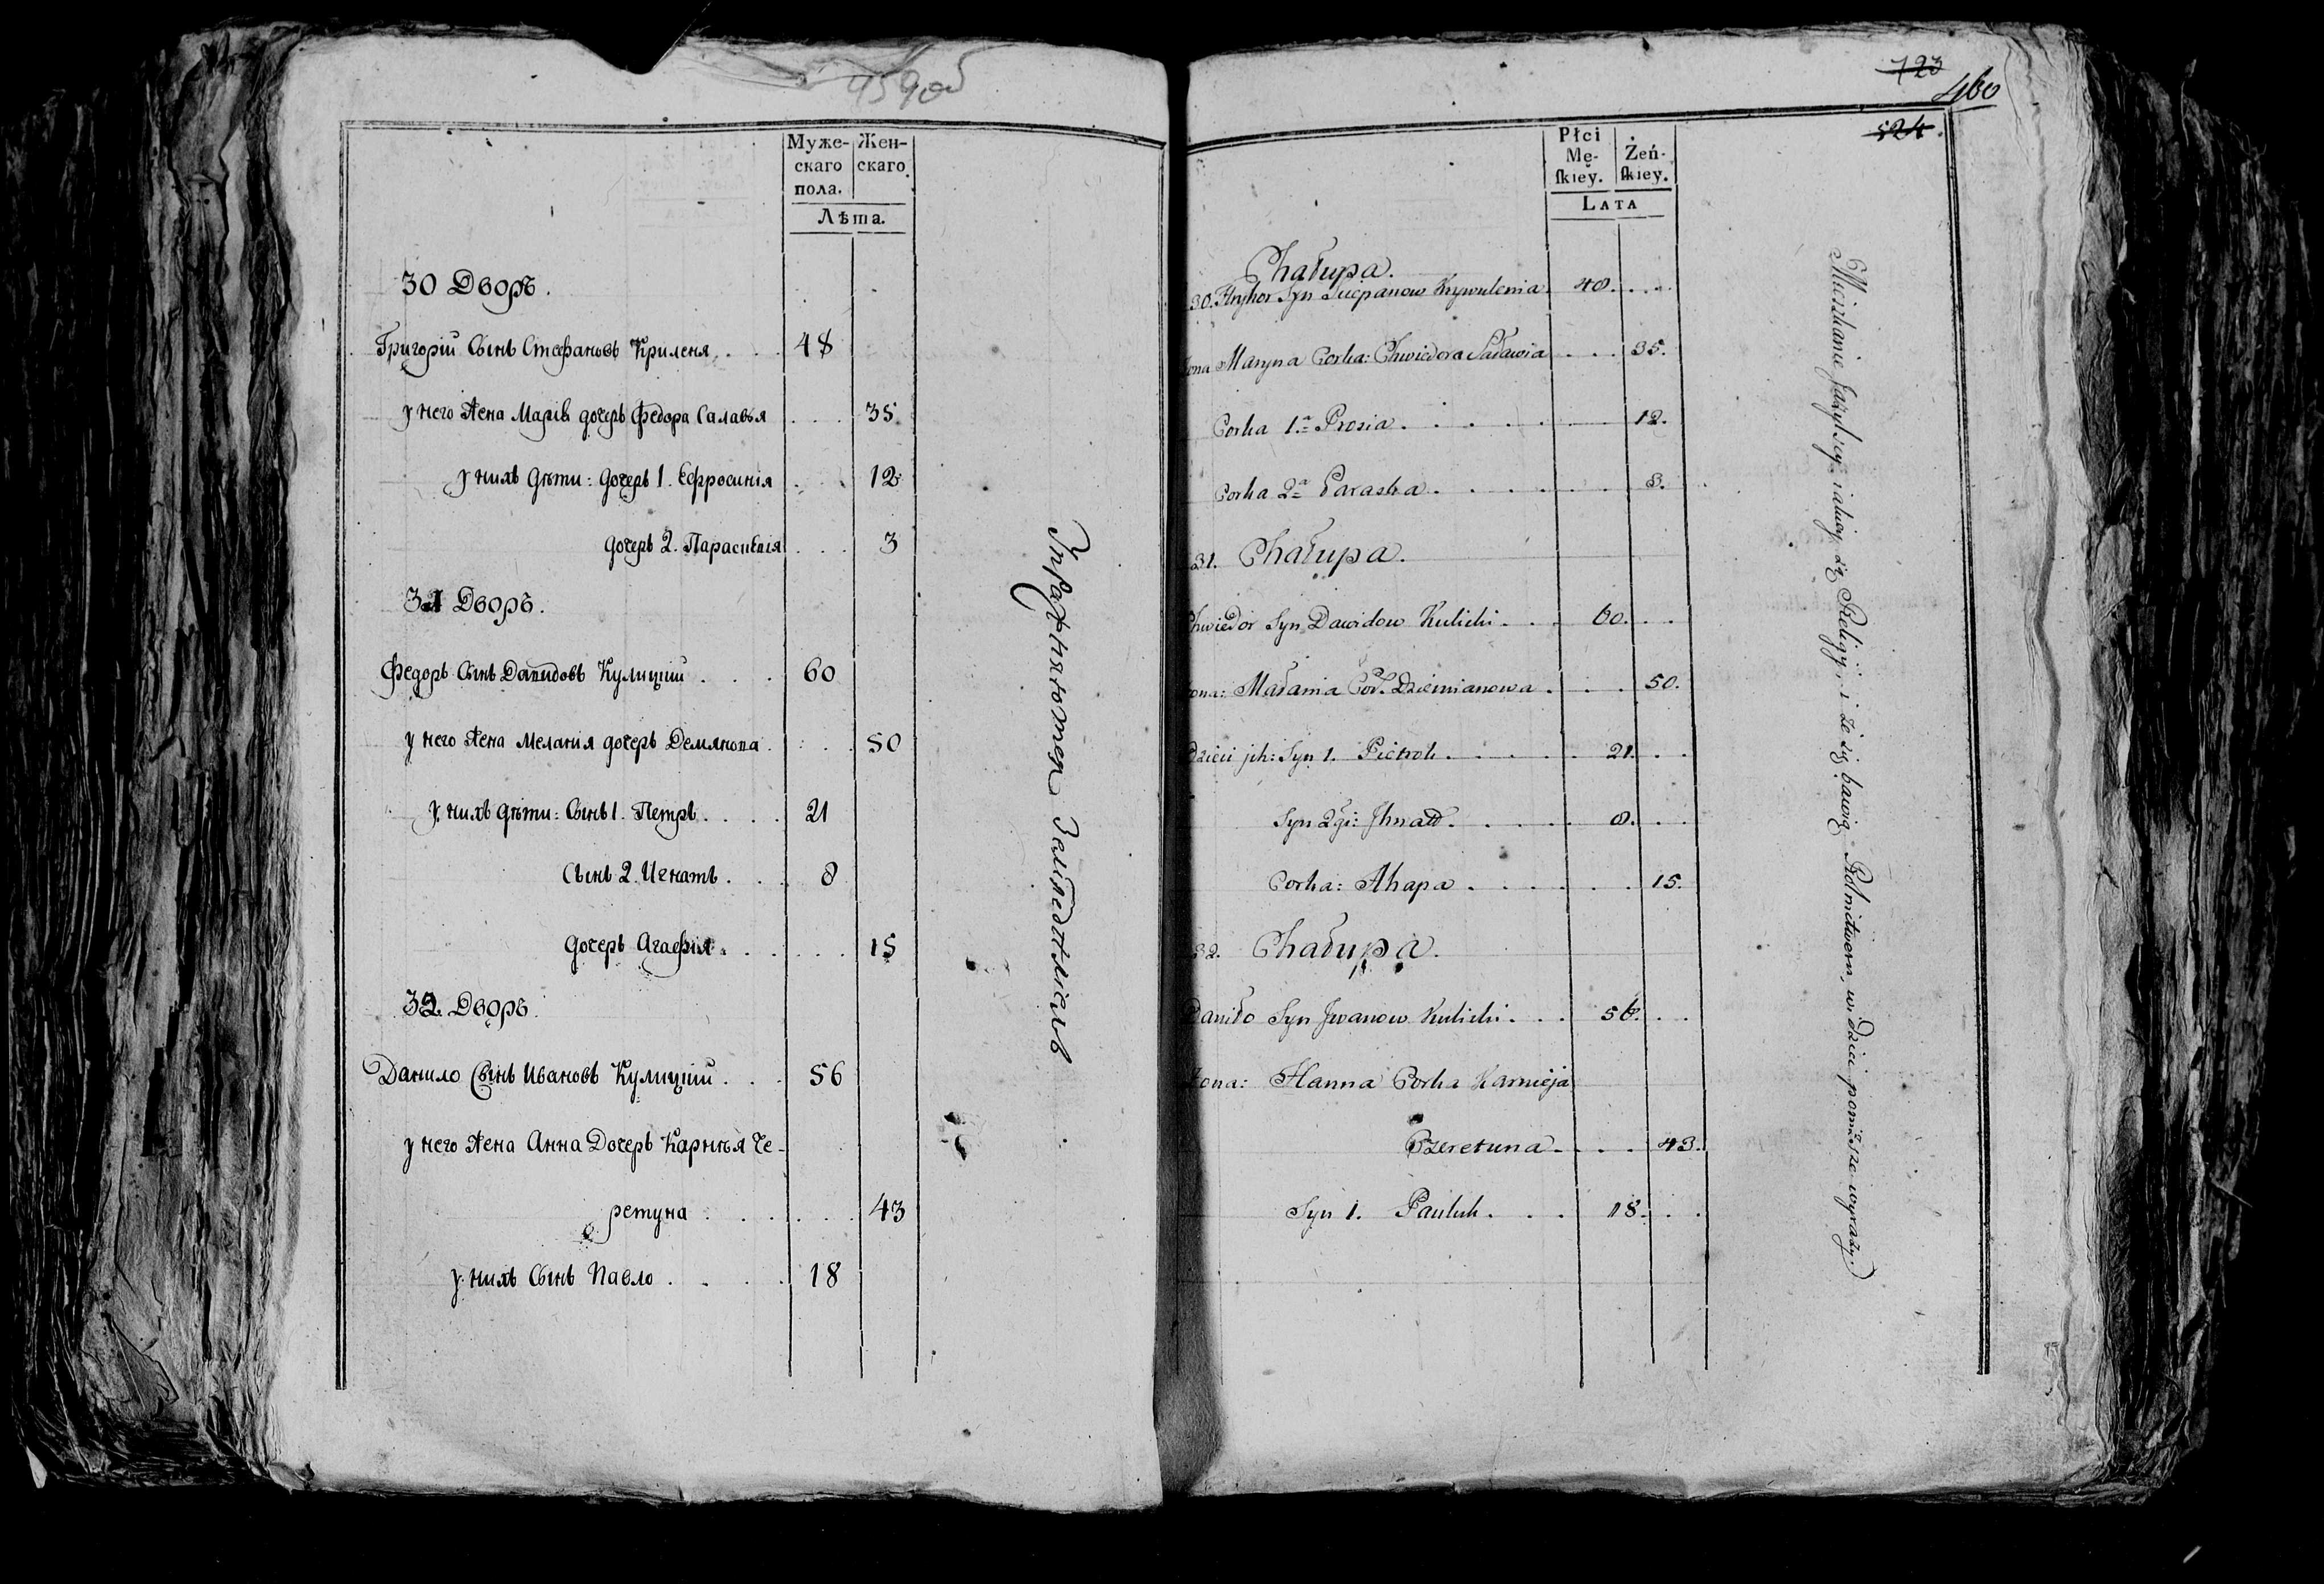 459об
Муже-
скаго
пола.
Жен-
скаго
Лѣта.
30 Дворъ.
Григорій Сынъ Стефановъ Криленя . . . 48
у него жена Марія дочерь Федора Салавья . . . 35
у нихъ дѣти: дочерь 1. Ефросинія . . . 12
дочерь 2. Параскевія . . . 3
31 Дворъ.
Федоръ Сынъ Давидовъ Кулицкій . . . 60
у него жена Меланія дочерь Демянова . . . 50
у нихъ дѣти: Сынъ 1. Петръ . . . . 21
Сынъ 2. Игнатъ . . . 8
дочерь Агафія . . . . . 15
32. Дворъ.
Данило Сынъ Ивановъ Кулицкій . . . 56
у него жена Анна Дочерь Карнѣя Че-
ретуна . . . . . . 43
у нихъ Сынъ Павло . . . . 18
Упражняются Земледѣліемъ
723
460
524.
Płci
Mę-
ſkiey.
Żeń-
ſkiey.
LATA
Chałupa.
30. Hryhor Syn Sciepanow Krywulenia 48. . . .
Żona Maryna Corka: Chwiedora Saławia . . . 35.
Corka 1.a Prosia . . . . . 12.
Corka 2.a Paraska . . . . . 3.
31. Chałupa.
Chwiedor Syn Dawidow Kulicki . . . 60. . .
Żona: Małania Cor. Dziemianowa . . . 50.
Dzieci jch: Syn 1. Pietrok . . . . . 21. . .
Syn 2gi: Jhnat . . . . 8. . .
Corka: Ahapa . . . . . . 15.
32. Chałupa.
Daniło Syn Jwanow Kulicki . . . 56. . .
Żona: Hanna Corka Karnieja
Czeretuna . . . . 43.
Syn 1. Pauluk . . . 18. . .
Mieszkanie jakiey są Religij, i że się bawią Rolnictwem, w dzieci pomiesz wyraży.